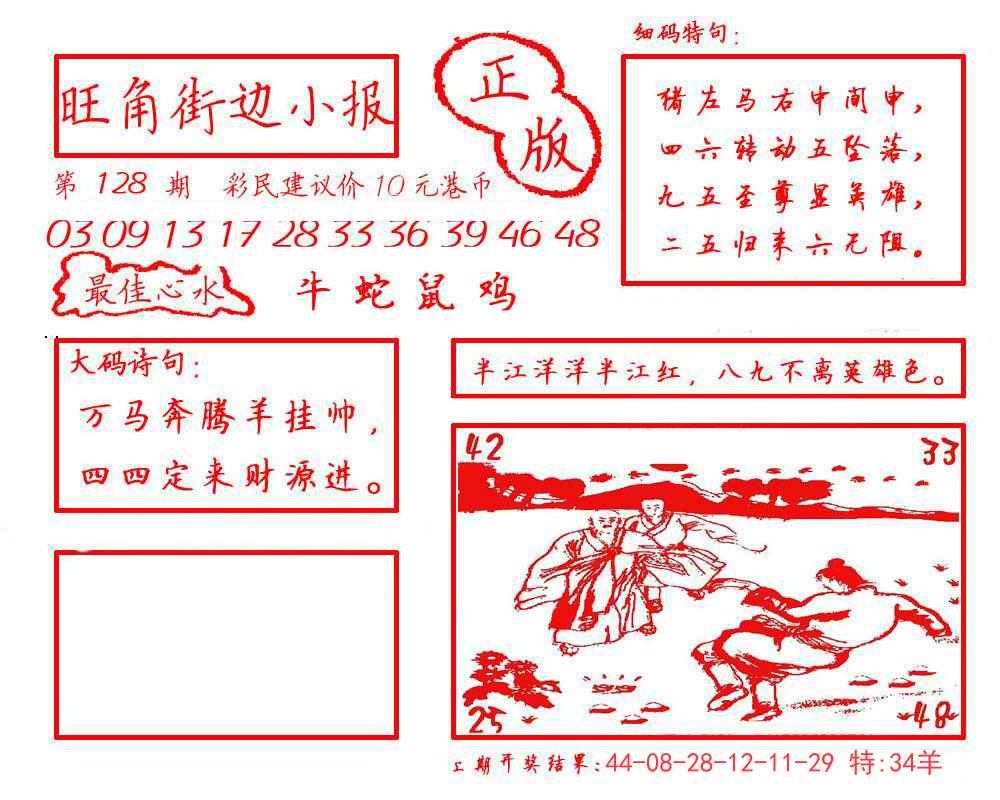 旺角街边小报
正版
第 128 期 彩民建议价 10 元港币
03 09 13 17 28 33 36 39 46 48
最佳心水 牛蛇鼠鸡
细码特句：
猪左马右中间申，
四六转动五坠落，
九五至尊显英雄，
二五归来六元阻。
大码诗句：
万马奔腾羊挂帅，
四四定来财源进。
半江洋洋半江红，八九不离英雄色。
42 33
25 48
期开奖结果：44-08-28-12-11-29 特:34羊